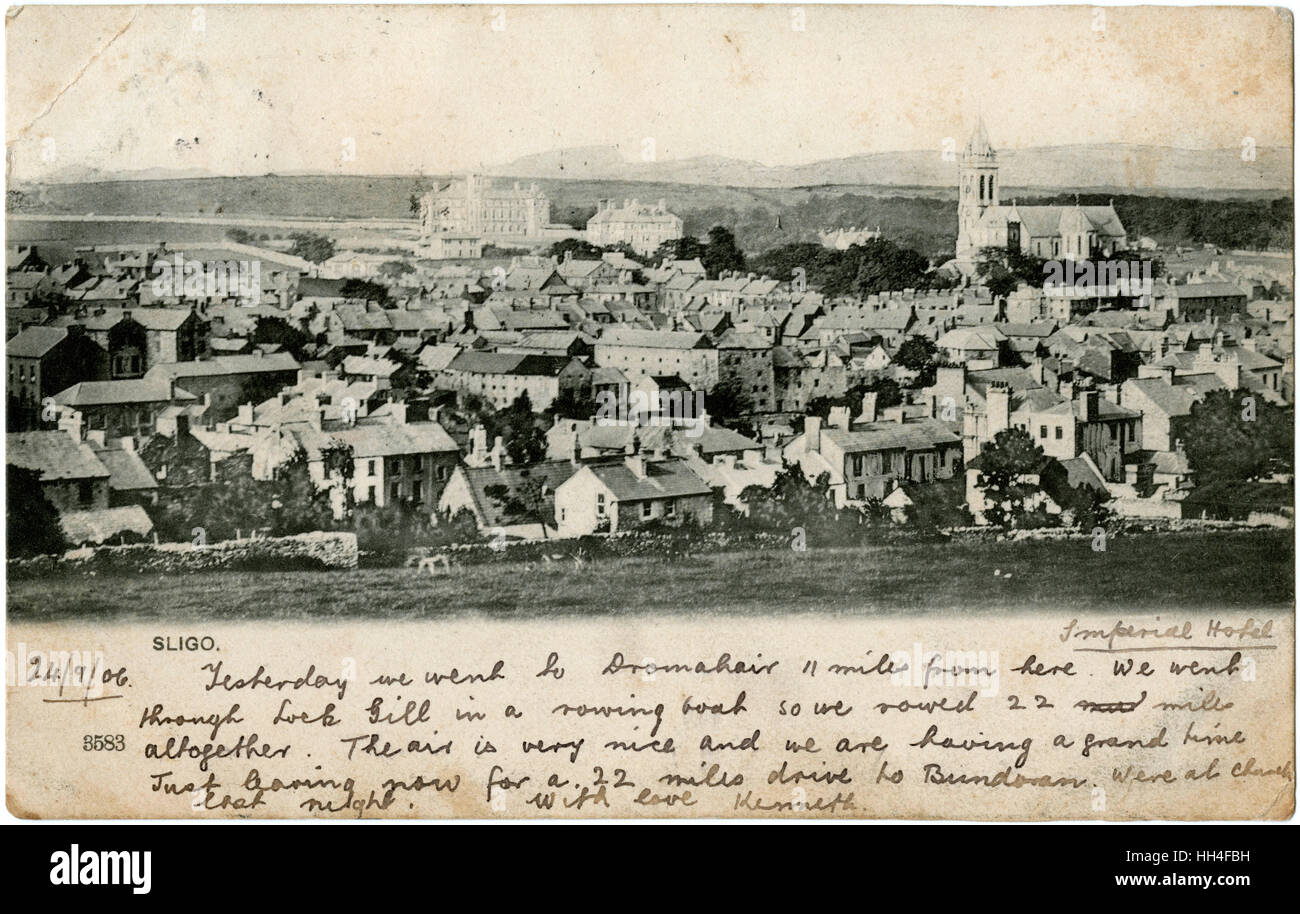 SLIGO.
Imperial Hotel
24/9/06.
Yesterday we went to Dromahair 11 miles from here. We went
through Lock Gill in a rowing boat so we rowed 22 miles
3583
altogether. The air is very nice and we are having a grand time
Just leaving now for a 22 miles drive to Bundoran. Were at church
last night. With love Kenneth.
alamy
alamy
Image ID: HH4FBH
www.alamy.com